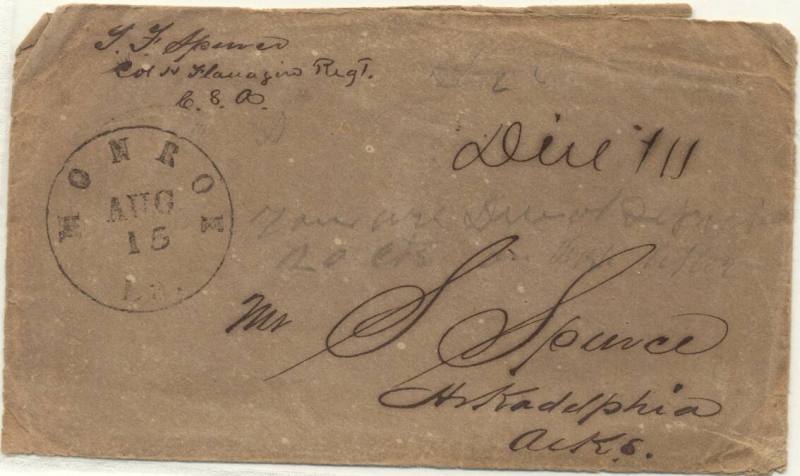 S. F. Spence
Col H Flanagin Regt.
C. S. A.
Due 10
MONROE
AUG
15
La.
You are
20 cts
Mr S Spence
Arkadelphia
Arks.